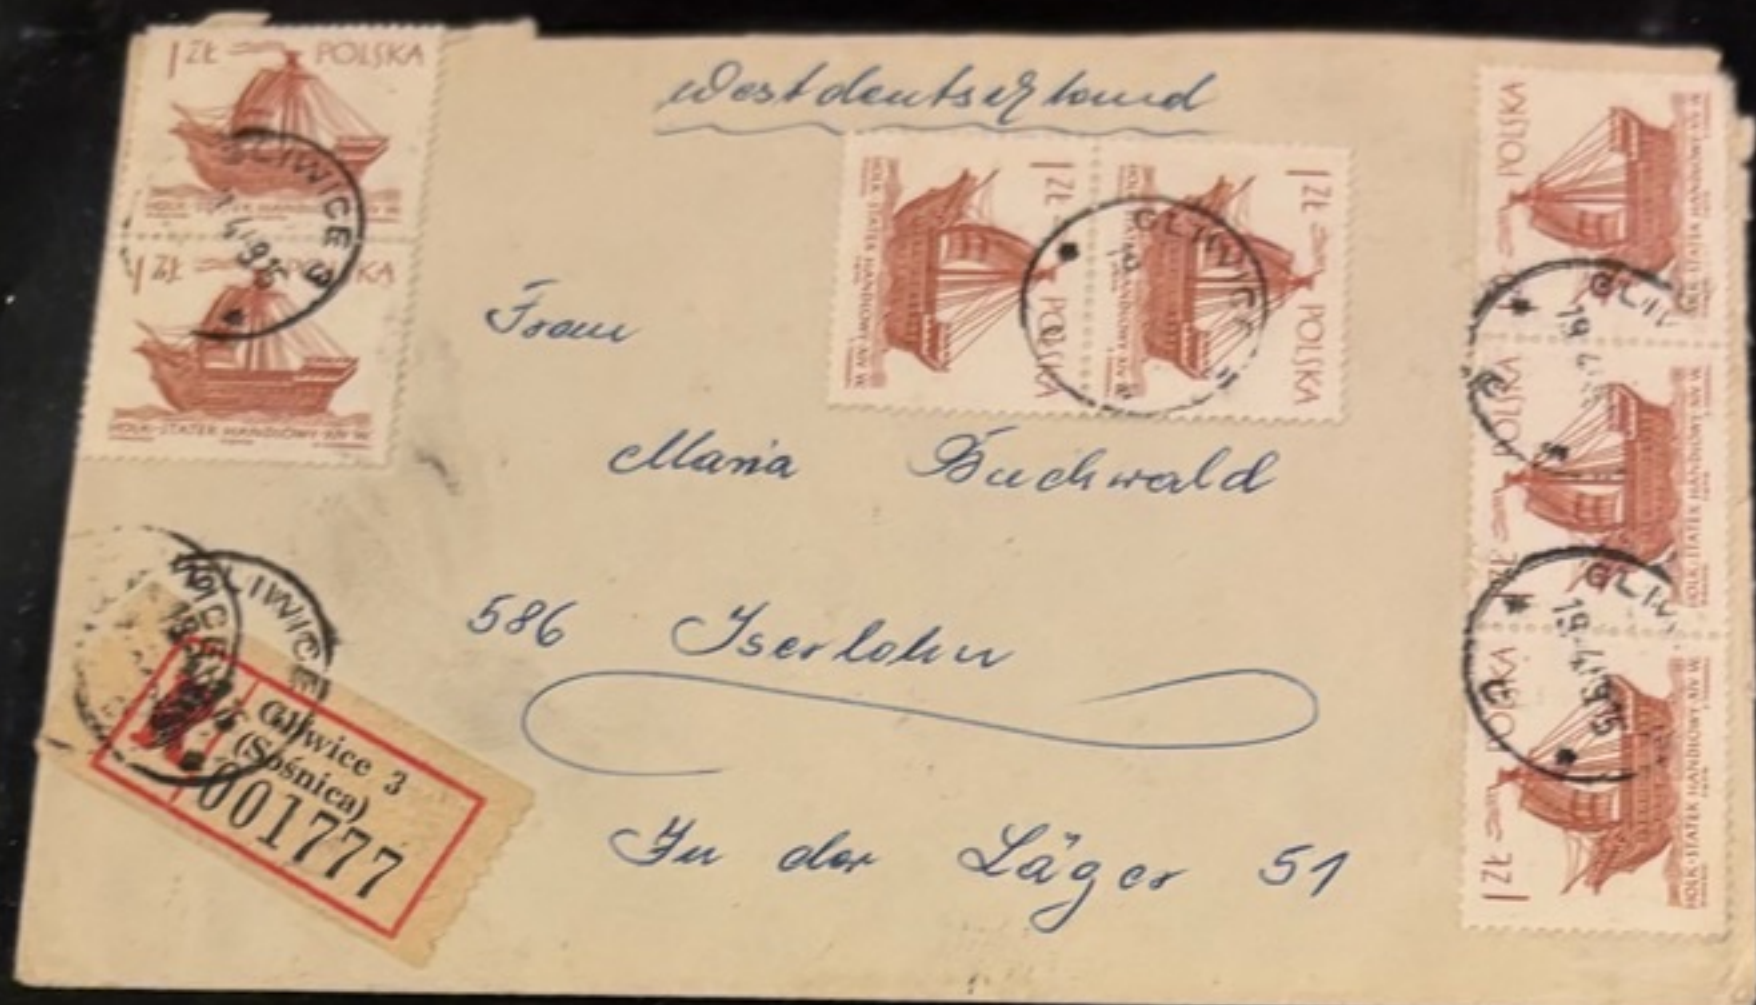 1 ZŁ POLSKA
HOLK-STATEK HANDLOWY XIV W.
GLIWICE 3
1 ZŁ
HOLK-STATEK HANDLOWY XIV W.
Westdeutschland
1 ZŁ POLSKA
HOLK-STATEK HANDLOWY XIV W.
1 ZŁ POLSKA
HOLK-STATEK HANDLOWY XIV W.
GLIWICE
POLSKA
HOLK-STATEK HANDLOWY XIV W.
POLSKA
HOLK-STATEK HANDLOWY XIV W.
1 ZŁ POLSKA
HOLK-STATEK HANDLOWY XIV W.
Frau
Maria Buchwald
586 Iserlohn
In der Läger 51
GLIWICE
R Gliwice 3
(Sośnica)
001777